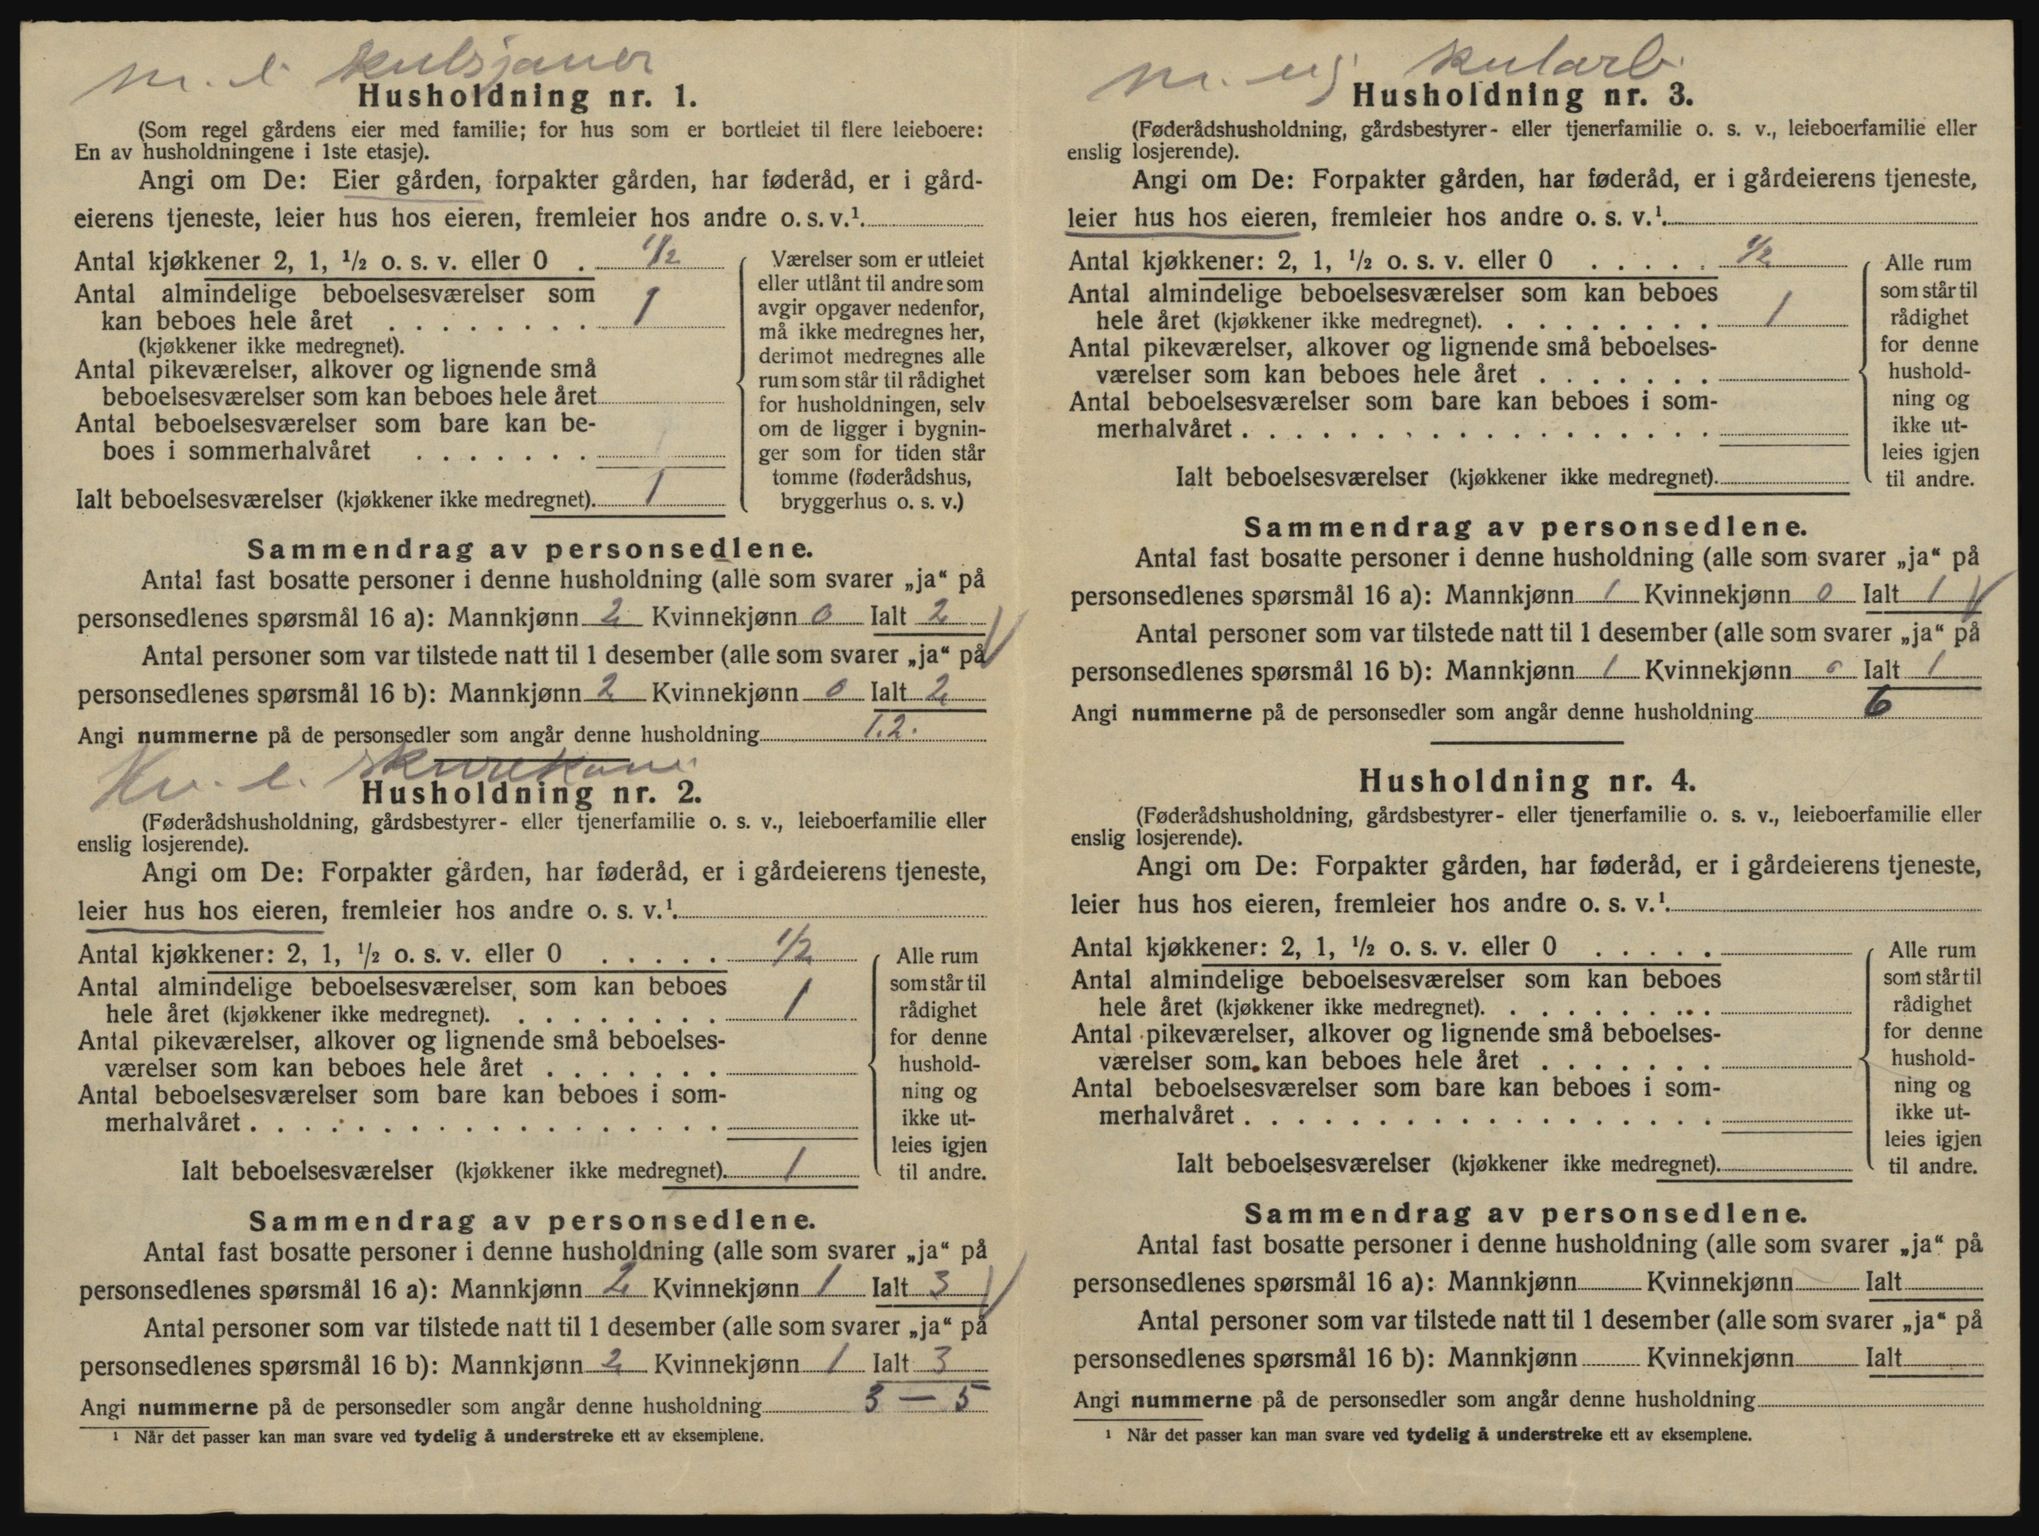 m. e. kulsjauer
Husholdning nr. 1.
(Som regel gårdens eier med familie; for hus som er bortleiet til flere leieboere:
En av husholdningene i 1ste etasje).
Angi om De: Eier gården, forpakter gården, har føderåd, er i gård-
eierens tjeneste, leier hus hos eieren, fremleier hos andre o. s. v.¹.
Antal kjøkkener 2, 1, ½ o. s. v. eller 0 . 1/2
Antal almindelige beboelsesværelser som
kan beboes hele året . . . . . . . . . 1
(kjøkkener ikke medregnet).
Antal pikeværelser, alkover og lignende små
beboelsesværelser som kan beboes hele året
Antal beboelsesværelser som bare kan be-
boes i sommerhalvåret . . . . . . .
Ialt beboelsesværelser (kjøkkener ikke medregnet). 1
Værelser som er utleiet
eller utlånt til andre som
avgir opgaver nedenfor,
må ikke medregnes her,
derimot medregnes alle
rum som står til rådighet
for husholdningen, selv
om de ligger i bygnin-
ger som for tiden står
tomme (føderådshus,
bryggerhus o. s. v.)
Sammendrag av personsedlene.
Antal fast bosatte personer i denne husholdning (alle som svarer „ja“ på
personsedlenes spørsmål 16 a): Mannkjønn 2 Kvinnekjønn 0 Ialt 2
Antal personer som var tilstede natt til 1 desember (alle som svarer „ja“ på
personsedlenes spørsmål 16 b): Mannkjønn 2 Kvinnekjønn 0 Ialt 2
Angi nummerne på de personsedler som angår denne husholdning 1.2.
Kv. e. skurekone
Husholdning nr. 2.
(Føderådshusholdning, gårdsbestyrer- eller tjenerfamilie o. s. v., leieboerfamilie eller
enslig losjerende).
Angi om De: Forpakter gården, har føderåd, er i gårdeierens tjeneste,
leier hus hos eieren, fremleier hos andre o. s. v.¹.
Antal kjøkkener: 2, 1, ½ o. s. v. eller 0 . . . . . 1/2
Antal almindelige beboelsesværelser som kan beboes
hele året (kjøkkener ikke medregnet). . . . . . . . . 1
Antal pikeværelser, alkover og lignende små beboelses-
værelser som kan beboes hele året . . . . . . .
Antal beboelsesværelser som bare kan beboes i som-
merhalvåret . . . . . . . . . . . . . . . . . .
Ialt beboelsesværelser (kjøkkener ikke medregnet). 1
Alle rum
som står til
rådighet
for denne
hushold-
ning og
ikke ut-
leies igjen
til andre.
Sammendrag av personsedlene.
Antal fast bosatte personer i denne husholdning (alle som svarer „ja“ på
personsedlenes spørsmål 16 a): Mannkjønn 2 Kvinnekjønn 1 Ialt 3
Antal personer som var tilstede natt til 1 desember (alle som svarer „ja“ på
personsedlenes spørsmål 16 b): Mannkjønn 2 Kvinnekjønn 1 Ialt 3
Angi nummerne på de personsedler som angår denne husholdning 3 — 5
¹ Når det passer kan man svare ved tydelig å understreke ett av eksemplene.
m. ug kularb.
Husholdning nr. 3.
(Føderådshusholdning, gårdsbestyrer- eller tjenerfamilie o. s. v., leieboerfamilie eller
enslig losjerende).
Angi om De: Forpakter gården, har føderåd, er i gårdeierens tjeneste,
leier hus hos eieren, fremleier hos andre o. s. v.¹.
Antal kjøkkener: 2, 1, ½ o. s. v. eller 0 . . . . . 1/2
Antal almindelige beboelsesværelser som kan beboes
hele året (kjøkkener ikke medregnet). . . . . . . . . 1
Antal pikeværelser, alkover og lignende små beboelses-
værelser som kan beboes hele året . . . . . . .
Antal beboelsesværelser som bare kan beboes i som-
merhalvåret . . . . . . . . . . . . . . . . . .
Ialt beboelsesværelser (kjøkkener ikke medregnet).
Alle rum
som står til
rådighet
for denne
hushold-
ning og
ikke ut-
leies igjen
til andre.
Sammendrag av personsedlene.
Antal fast bosatte personer i denne husholdning (alle som svarer „ja“ på
personsedlenes spørsmål 16 a): Mannkjønn 1 Kvinnekjønn 0 Ialt 1
Antal personer som var tilstede natt til 1 desember (alle som svarer „ja“ på
personsedlenes spørsmål 16 b): Mannkjønn 1 Kvinnekjønn 0 Ialt 1
Angi nummerne på de personsedler som angår denne husholdning 6
Husholdning nr. 4.
(Føderådshusholdning, gårdsbestyrer- eller tjenerfamilie o. s. v., leieboerfamilie eller
enslig losjerende).
Angi om De: Forpakter gården, har føderåd, er i gårdeierens tjeneste,
leier hus hos eieren, fremleier hos andre o. s. v.¹.
Antal kjøkkener: 2, 1, ½ o. s. v. eller 0 . . . . .
Antal almindelige beboelsesværelser som kan beboes
hele året (kjøkkener ikke medregnet). . . . . . . . .
Antal pikeværelser, alkover og lignende små beboelses-
værelser som kan beboes hele året . . . . . . .
Antal beboelsesværelser som bare kan beboes i som-
merhalvåret . . . . . . . . . . . . . . . . . .
Ialt beboelsesværelser (kjøkkener ikke medregnet).
Alle rum
som står til
rådighet
for denne
hushold-
ning og
ikke ut-
leies igjen
til andre.
Sammendrag av personsedlene.
Antal fast bosatte personer i denne husholdning (alle som svarer „ja“ på
personsedlenes spørsmål 16 a): Mannkjønn Kvinnekjønn Ialt
Antal personer som var tilstede natt til 1 desember (alle som svarer „ja“ på
personsedlenes spørsmål 16 b): Mannkjønn Kvinnekjønn Ialt
Angi nummerne på de personsedler som angår denne husholdning
¹ Når det passer kan man svare ved tydelig å understreke ett av eksemplene.